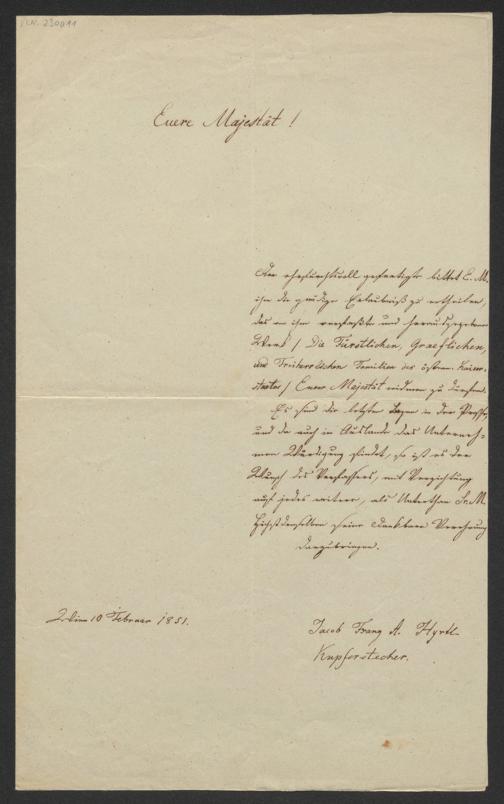 I.N. 230911
Euere Majestät!
Der ehrfurchtsvoll gefertigte bittet E. M.
ihm die gnädige Erlaubniß zu ertheilen,
das von ihm verfaßte und herausgegebene
Werk / Die Fürstlichen, Graeflichen,
und Freiherrlichen Familien des österr. Kaiser-
staates / Euerer Majestät widmen zu dürfen.
Es sind die letzten Bogen in der Presse,
und da auch im Auslande das Unterneh-
men Würdigung findet, so ist es der
Wunsch des Verfassers, mit Verzichtung
auf jedes weitere, als Unterthan Sr. M.
Höchstdenselben seine dankbare Verehrung
darzubringen.
Wien 10 Februar 1851.
Jacob Franz A. Hyrtl
Kupferstecher.